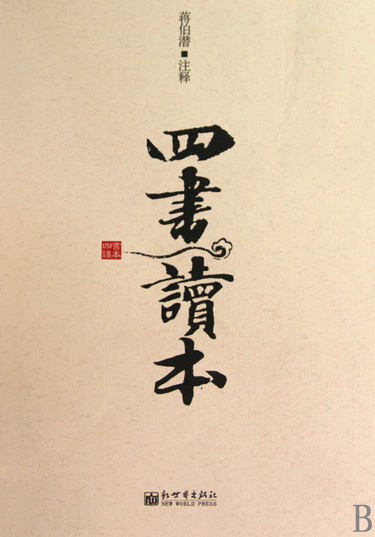 蒋伯潜■注释
四書讀本
書本
四讀
新世界出版社
NEW WORLD PRESS
B